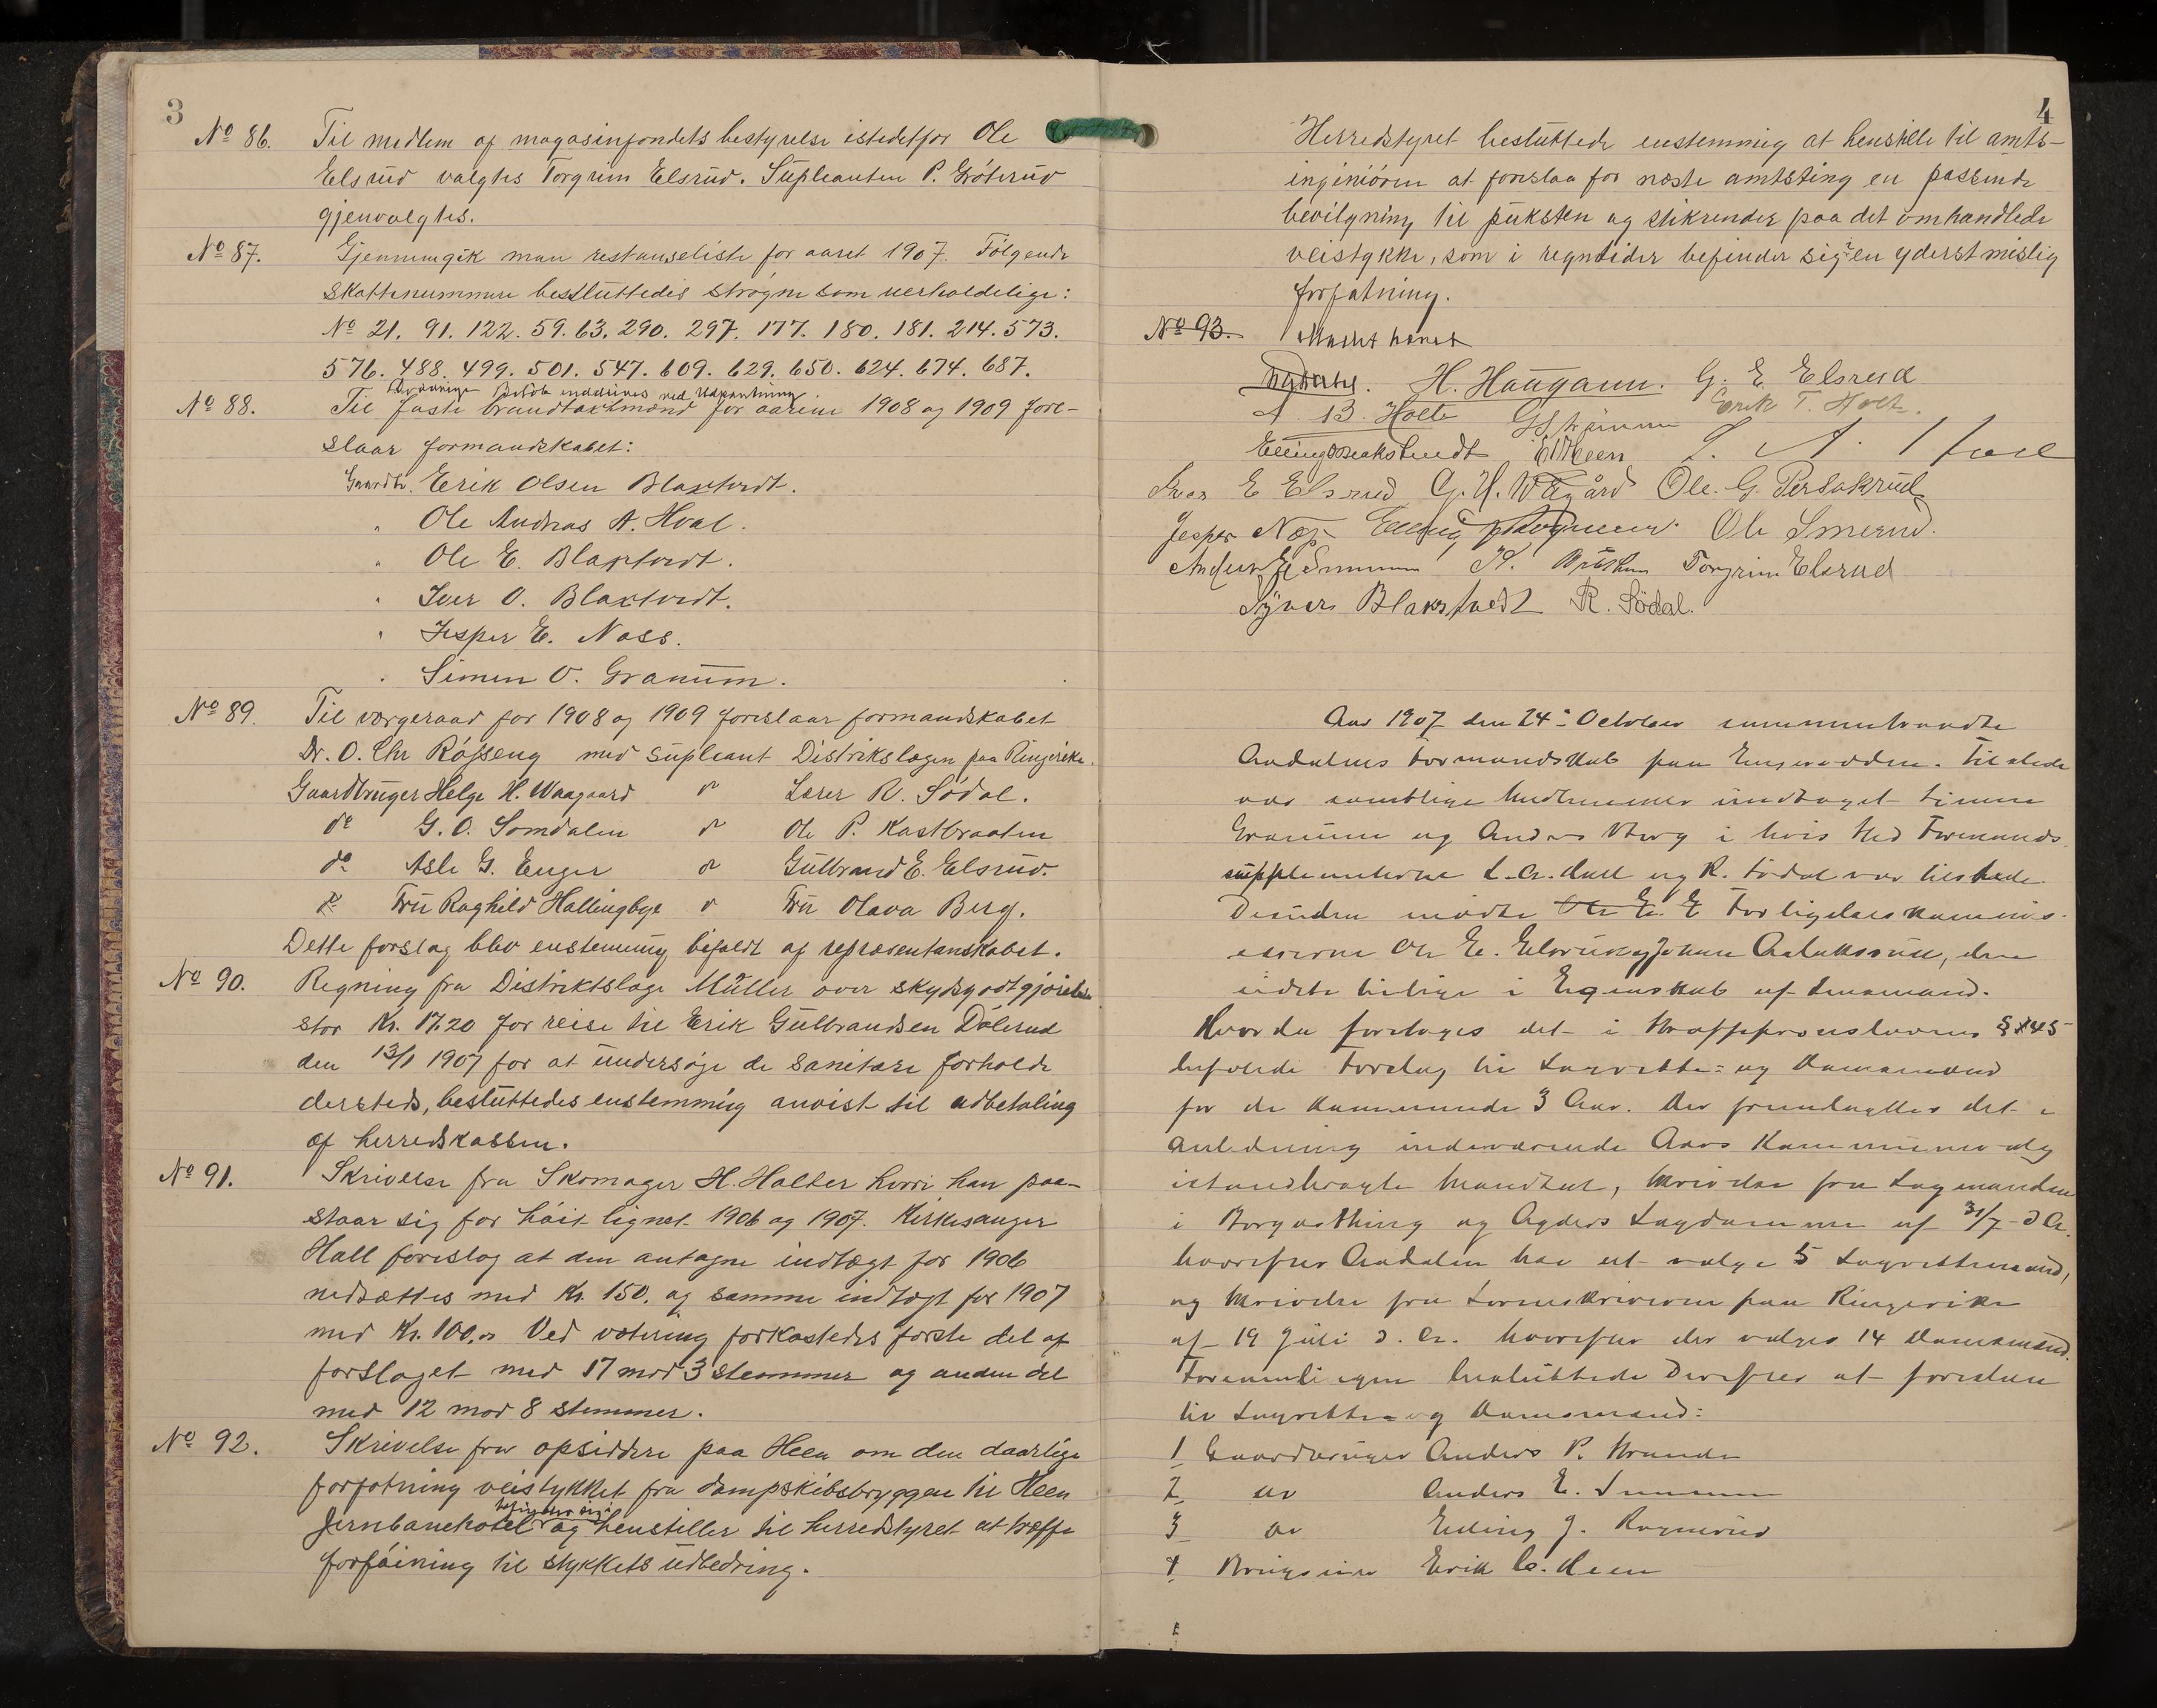 3
No 86. Til medlem af magasinfondets bestyrelse istedetfor Ole
Elsrud valgtes Torgrim Elsrud. Supleanten P. Gröterud
gjenvalgtes.
No 87. Gjennemgik man restanseliste for aaret 1907. Følgende
skattenummere besluttedes strøgne som uerholdelige:
No 21. 91. 122. 59. 63. 290. 297. 177. 180. 181. 214. 573.
576. 488. 499. 501. 547. 609. 629. 650. 624. 674. 687.
Øvrige Beløb inddrives ved Udpantning
No 88. Til faste brandtaxtmænd for aarene 1908 og 1909 fore-
slaar formandskabet:
Gaardbr. Erik Olsen Blaxtvedt.
" Ole Andreas A. Hval.
" Ole E. Blaxtvedt.
" Iver O. Blaxtvedt.
" Jesper E. Næss.
" Simen O. Granum.
No 89. Til vergeraad for 1908 og 1909 foreslaar formandskabet
Dr. O. Chr Røsseng med supleant Distrikslægen paa Ringerike.
Gaardbruger Helge H. Waagaard do Lærer R. Sødal.
do G. O. Somdalen do Ole P. Kastbraaten
do Asle G. Enger do Gulbrand E. Elsrud.
Fru Raghild Hallingbye do Fru Olava Berg.
Dette forslag blev enstemmig bifaldt af representanskabet.
No 90. Regning fra Distriktslæge Müller over skydsgodtgjørelse
stor Kr. 17.20 for reise til Erik Gulbrandsen Dölerud
den 13/1 1907 for at undersøge de sanitære forholde
dersteds, besluttedes enstemmig anvist til udbetaling
af herredskassen.
No 91. Skrivelse fra Skomager H. Halter hvori han paa-
staar sig for høit lignet 1906 og 1907. Kirkesanger
Hall foreslog at den antagne indtægt for 1906
nedsættes med Kr. 150. og samme indtægt for 1907
med Kr. 100,00 Ved votering forkastedes første del af
forslaget med 17 mod 3 stemmer og anden del
med 12 mod 8 stemmer.
No 92. Skrivelse fra opsiddere paa Heen om den daarlige
forfatning veistykket fra dampskibsbryggen til Heen
befinder sig i
Jernbanehotel og henstiller til herredstyret at træffe
forføining til stykkets udbedring.
4
Herredstyret besluttede enstemmig at henstille til amts-
ingeniören at foreslaa for næste amtsting en passende
bevilgning til puksten og stikrender paa det omhandlede
veistykke, som i regntider befinder sig i en yderst mislig
forfatning.
No 93. Mødet hævet
H. Haugann. G. E. Elsrud
A. B. Holte Erik T. Holt.
Elling Blakstvedt E. Heen
Iver E Elsrud G. H. Wågård Ole. G. Persokrud
Jesper Næss Ole Smerud.
Torgrim Elsrud
Blakstvedt R. Södal.
Aar 1907 den 24de October sammentraadte
Aadalens Formandskab paa Engeradden. Tilstede
var samtlige Medlemmer undtaget Simen
Granum og Anders Berg i hvis Sted Formands-
suppleanterne L. A. Hall og R. Södal var tilstede.
Desuden mødte Ole E. E Forligelseskommis-
ærerne Ole E. Elsrud og Johan , den
sidste tillige i Egenskab af Lensmand.
Hvorda foretoges det i Straffeproceslovens § 45
befalede Forslag til Lagrette- og Domsmænd
for de kommende 3 Aar. Der fremlagdes det i
anledning indeværende Aars Kommunevalg
istandbragte Mandtal, Skrivelse fra Lagmanden
i Borgarthing og Agders Lagdømme af 31/7 d. A.
hvorefter Aadalen har at vælge 5 Lagrettemænd,
og Skrivelse fra Sorenskriveren paa Ringerike
af 19 Juli d. A. hvorefter der vælges 14 Domsmænd.
Forsamlingen besluttede derefter at foreslaa
til Lagrette og Domsmænd:
1 Gaardbruger Anders P. Strande
2 do Anders E. Semmen
3 do Elling J. Ragnerud
4 Erik C. Heen